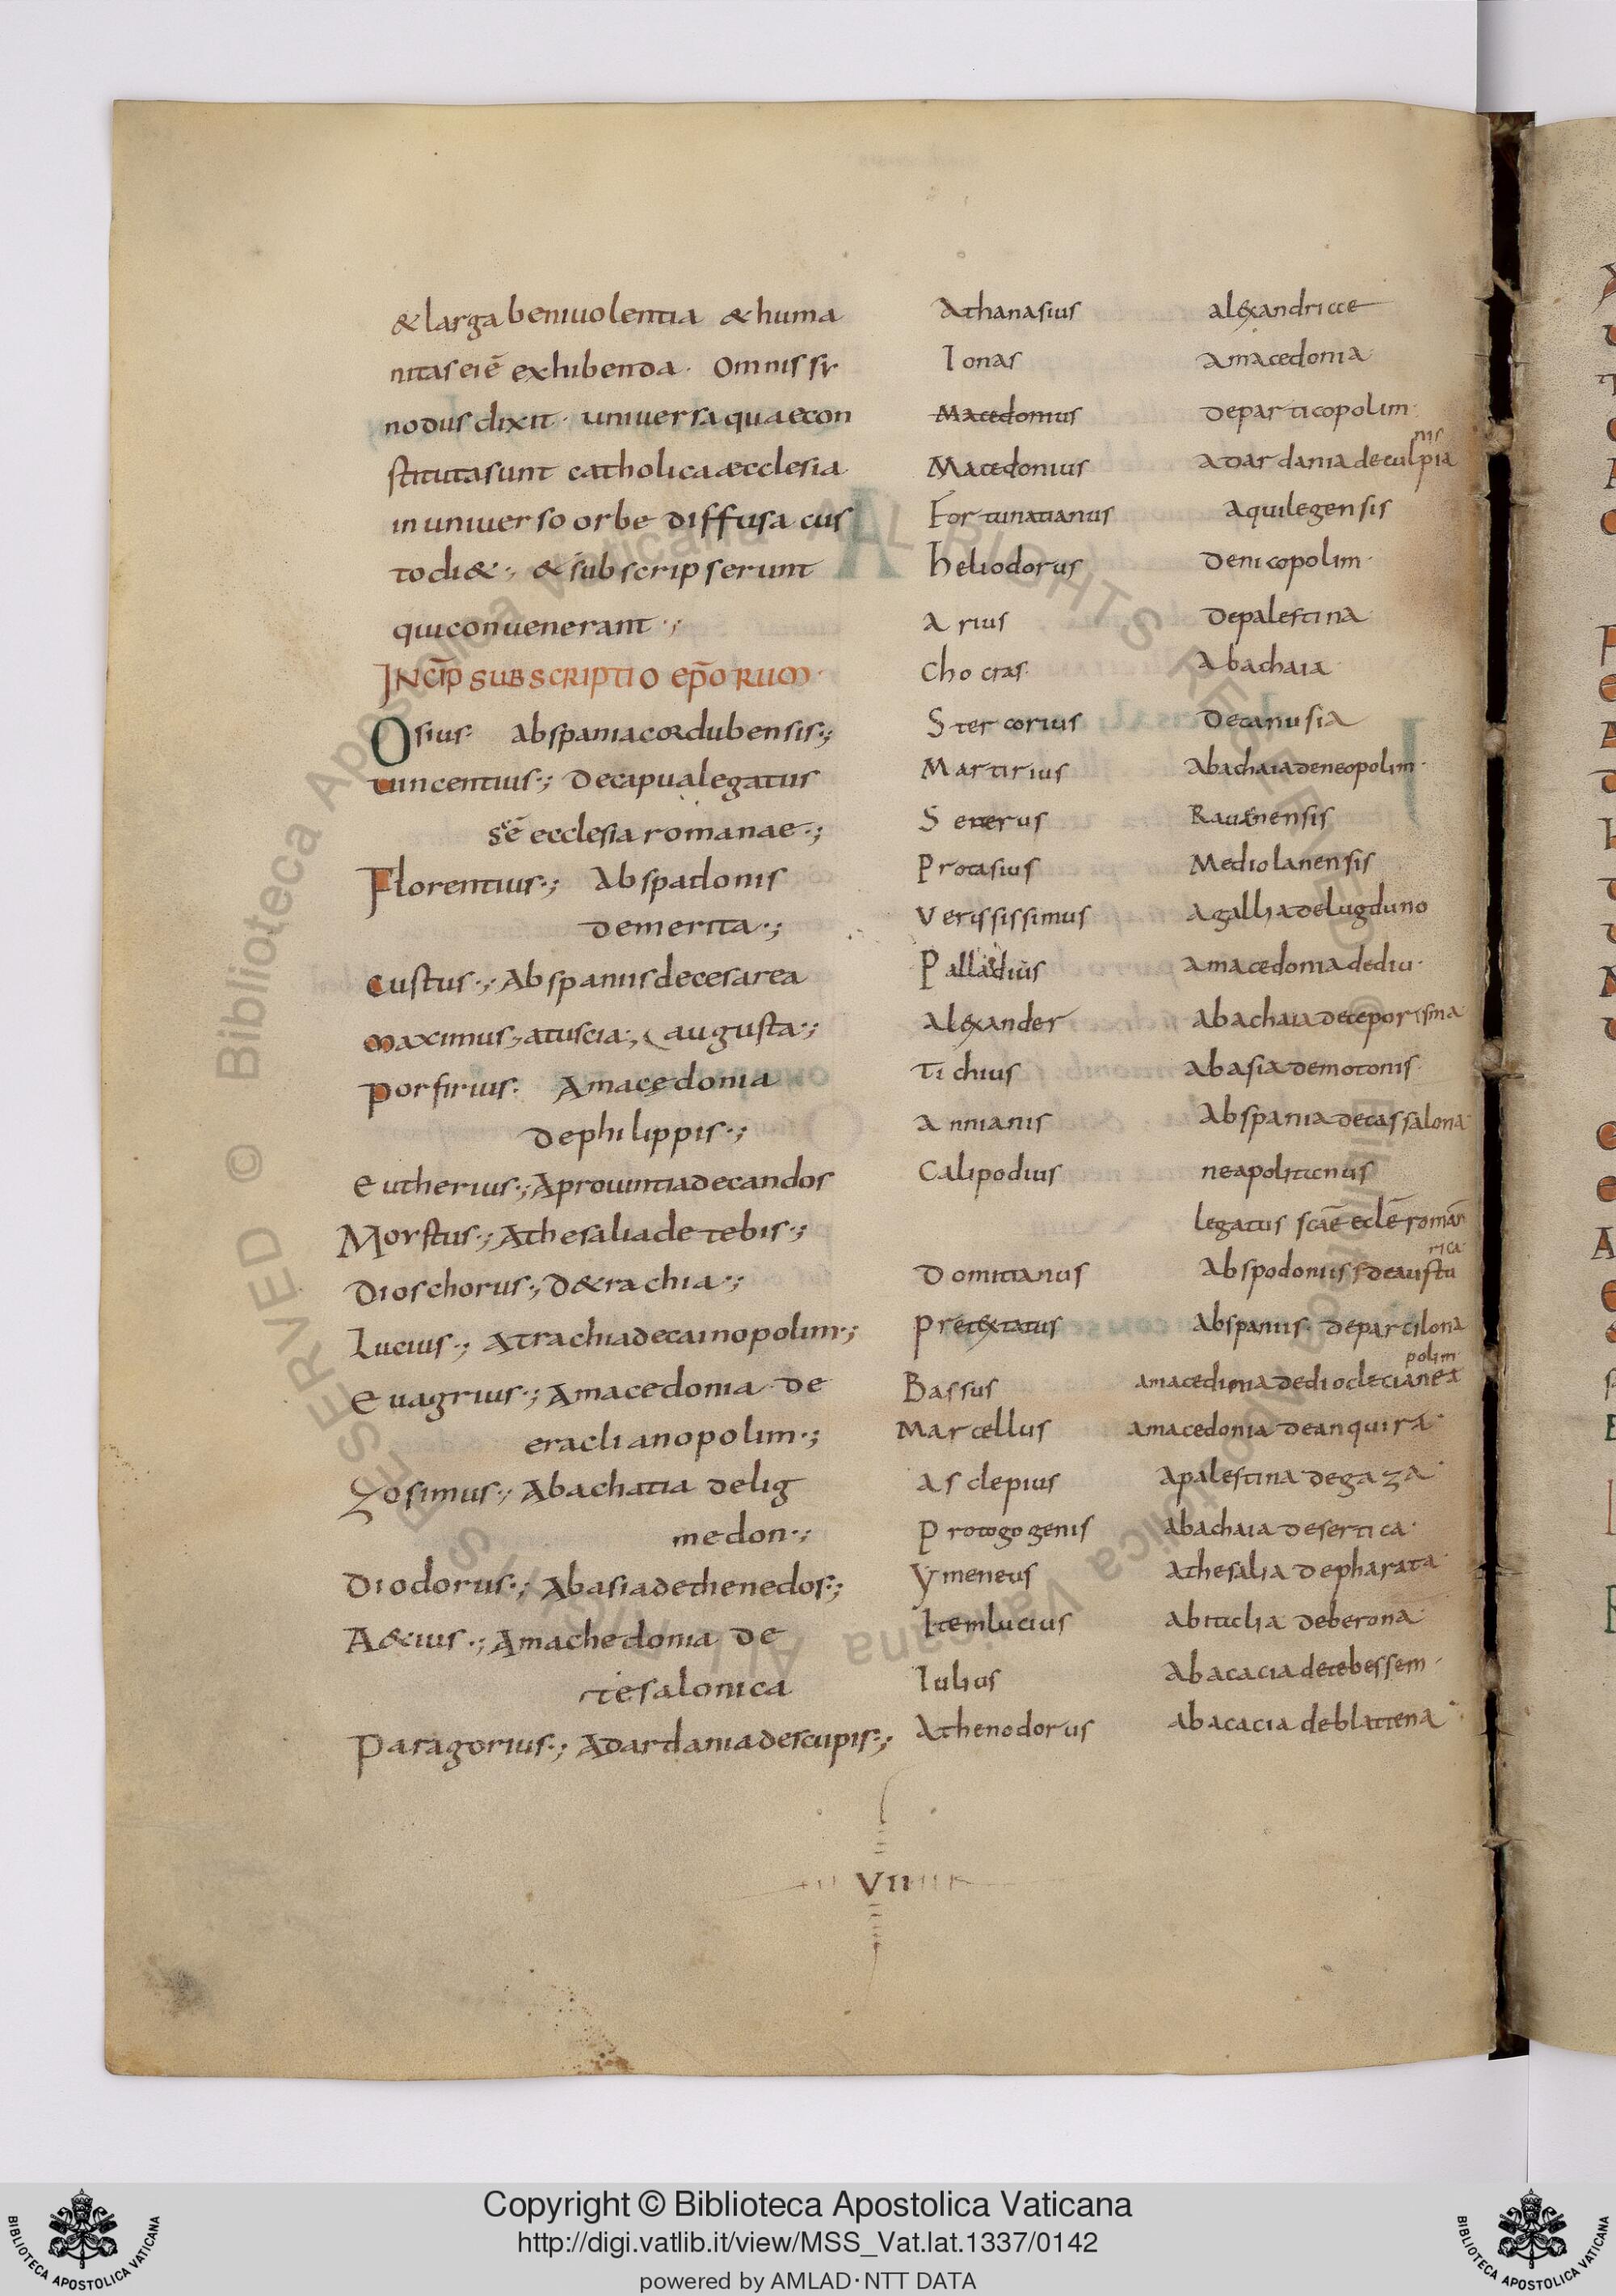 & larga beniuolentia & huma
nitas eiē exhibenda. Omnis sy
nodus dixit. uniuersa quae con
stituta sunt catholica aecclesia
in uniuerso orbe diffusa cus
todi&; & subscripserunt
qui conuenerant;
INCIP̄ SUBSCRIPTIO EP̄ORUM
Osius ab spania cordubensis;
Uincentius; De capua legatus
scē ecclesia romanae;
Florentius; Ab spadonis
de merita;
Custus; Ab spaniis de cesarea
Maximus, a tuscia; augusta;
Porfirius. A macedonia
de philippis;
Eutherius; A prouintia de candos
Morstus; A thesalia de tebis;
Dioschorus; D& rachia;
Lucius; A trachia de cainopolim;
Euagrius; A macedonia de
eraclianopolim;
Zosimus; Ab achatia de lig
medon;
Diodorus; Ab asia de thenedos;
A&ius; A machedonia de
tesalonica
Paragorius; A dardania de scupis;
Athanasius alexandricce
Ionas a macedonia
Macedonius de particopolim
Macedonius a dardania de culpia
nis
Fortunatianus Aquilegensis
heliodorus de nicopolim
Arius de palestina
Chocras Ab achaia
Stercorius De canusia
Martirius Ab achaia de neopolim
Seuerus Rauenensis
Protasius Mediolanensis
Verississimus A gallia de lugduno
Palladius a macedonia de diu
alexander ab achaia de ceporisma
Tichius ab asia de motonis
annianis Ab spania de cassalona
Calipodius neapolitcnus
legatus scāe eclē romān
Domitianus Ab spodoniis de austu
rica
Pretextatus Ab spaniis de parcilona
Bassus a macedinia de diocleciane a
polim
Marcellus a macedonia de anquira
Asclepius a palestina de gaza
Protogogenis ab achaia de sertica
Ymeneus a thesalia de pharata
Item lucius ab iticlia de berona
Iulius Ab acacia de tebessem
Athenodorus Ab acacia de blattena
VII
© Biblioteca Apostolica Vaticana ALL RIGHTS RESERVED © Biblioteca Apostolica Vaticana ALL RIGHTS RESERVED
BIBLIOTECA APOSTOLICA VATICANA
Copyright © Biblioteca Apostolica Vaticana
http://digi.vatlib.it/view/MSS_Vat.lat.1337/0142
powered by AMLAD·NTT DATA
BIBLIOTECA APOSTOLICA VATICANA